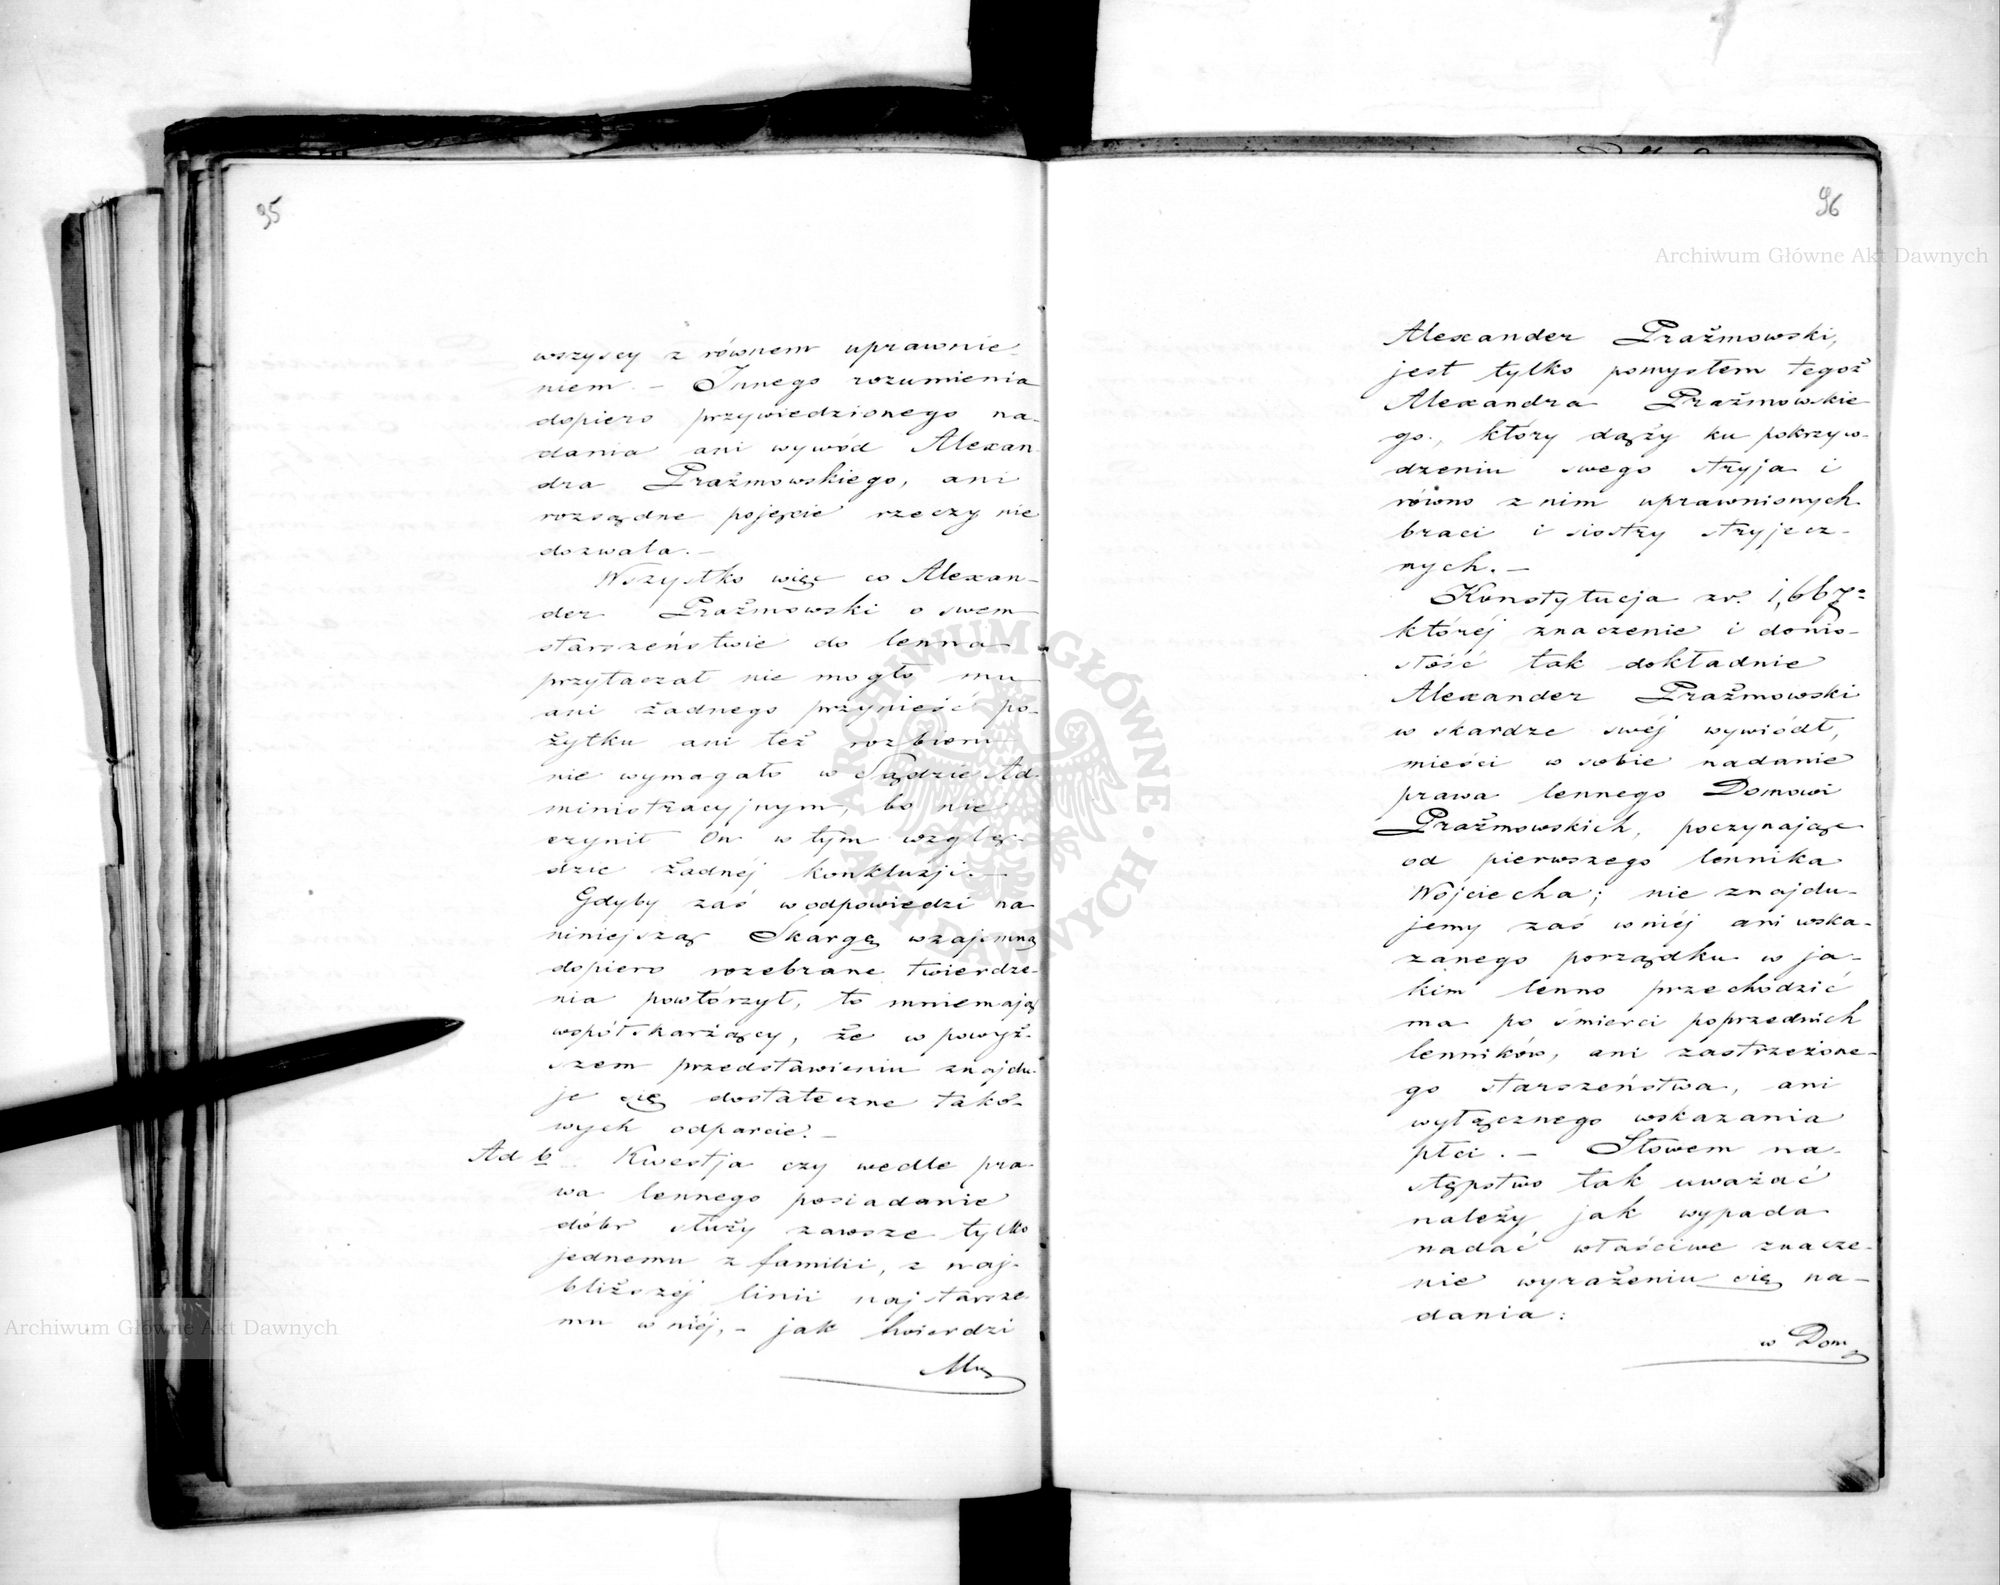 95
wszyscy z równem uprawnie-
niem. – Innego rozumienia
dopiero przywiedzionego na-
dania ani wywód Alexan-
dra Prażmowskiego, ani
rozsądne pojęcie rzeczy nie
dozwala. –
Wszystko więc co Alexan-
der Prażmowski o swem
starszeństwie do lenna
przytaczał nie mogło mu
ani żadnego przynieść po-
żytku ani też rozbioru
nie wymagało w Sądzie Ad-
ministracyjnym, bo nie
czynił On w tym wzglę-
dzie żadnéj konkluzji. –
Gdyby zaś w odpowiedzi na
niniejszą Skargę wzajemną
dopiero rozebrane twierdze-
nia powtórzył, to mniemają
współskarżący, że w powyż-
szem przedstawieniu znajdu-
je się dostateczne tako-
wych odparcie. –
Ad b. Kwestja czy wedle pra-
wa lennego posiadanie
dóbr służy zawsze tylko
jednemu z familii, z naj-
bliższéj linii najstarsze-
mu w niéj, – jak twierdzi
96
Alexander Prażmowski,
jest tylko pomysłem tegoż
Alexandra Prażmowskie
go., który dąży ku pokrzyw-
dzeniu swego stryja i
równo z nim uprawnionych
braci i siostry stryjecz-
nych. –
Konstytucja zr. 1,667º
któréj znaczenie i donio-
słość tak dokładnie
Alexander Prażmowski
w skardze swéj wywiódł,
mieści w sobie nadanie
prawa lennego Domowi
Prażmowskich, poczynając
od pierwszego lennika
Wojciecha; nie znajdu-
jemy zaś w niéj ani wska-
zanego porządku w ja-
kim lenno przechodzić
ma po śmierci poprzednich
lenników, ani zastrzeżone-
go starszeństwa, ani
wyłącznego wskazania
płci. – Słowem na-
stępstwo tak uważać
należy jak wypada
nadać właściwe znacze-
nie wyrażeniu się na-
dania:
w Dom
Archiwum Główne Akt Dawnych
Archiwum Główne Akt Dawnych
ARCHIWUM GŁÓWNE · AKT DAWNYCH ·